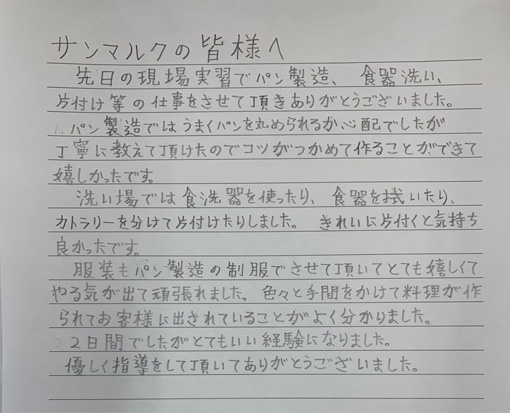 サンマルクの皆様へ
先日の現場実習でパン製造、食器洗い、
片付け等の仕事をさせて頂きありがとうございました。
パン製造ではうまくパンを丸められるか心配でしたが
丁寧に教えて頂けたのでコツがつかめて作ることができて
嬉しかったです。
洗い場では食洗器を使ったり、食器を拭いたり、
カトラリーを分けて片付けたりしました。きれいに片付くと気持ち
良かったです。
服装もパン製造の制服でさせて頂いてとても嬉しくて
やる気が出て頑張れました。色々と手間をかけて料理が作
られてお客様に出されていることがよく分かりました。
2日間でしたがとてもいい経験になりました。
優しく指導をして頂いてありがとうございました。